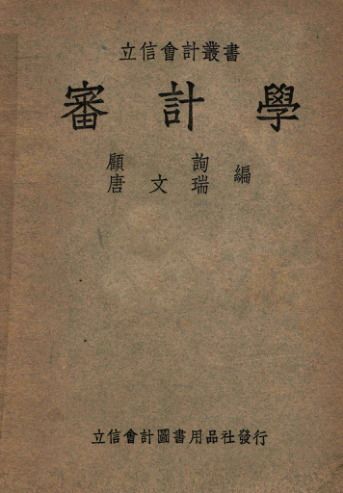 立信會計叢書
審計學
顧詢
唐文瑞 編
立信會計圖書用品社發行